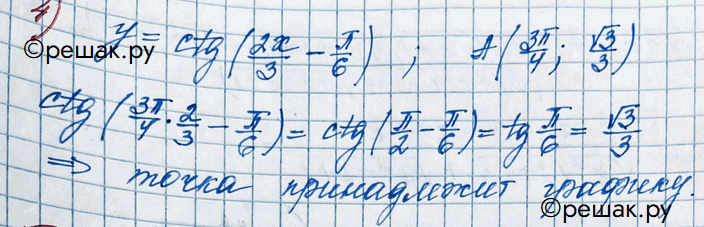 4)
y = ctg(2x/3 − π/6) ; A(3π/4; √3/3)
©решак.ру
ctg(3π/4 · 2/3 − π/6) = ctg(π/2 − π/6) = tg π/6 = √3/3
⇒ точка принадлежит графику.
©решак.ру